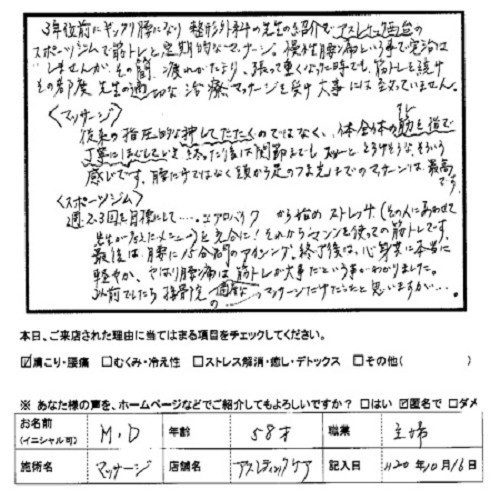 3年位前にギックリ腰になり 整形外科の先生の紹介で アスレティック仙台の
スポーツジムで筋トレと定期的なマッサージ。慢性腰痛という事で完治は
しませんが、その間、疲れがたまり、張って重くなった時でも、筋トレを続け
その都度、先生の適切な治療マッサージを受け 大事には至っていません。
〈マッサージ〉
従来の指圧的な押してたたくのではなく、体全体の筋を道具で
丁寧にほぐして 終った後は関節までも とろけそうな、そういう
感じです。腰だけではなく頭から足のつま先までのマッサージは、最高
です。
〈スポーツジム〉
週2~3回を目標にして‥‥エアロバイク から始め ストレッチ(その人にあわせて
先生が考えたメニュー)を充分に!それからマシンを使っての筋トレです。
最後は腰に15分間のアイシング。終了後は、心身共に本当に
軽やか、やはり腰痛は筋トレが大事だという事がわかりました。
以前でしたら接骨院の マッサージだけだったと思いますが‥‥。
本日、ご来店された理由に当てはまる項目をチェックしてください。
☑肩こり・腰痛 □むくみ・冷え性 □ストレス解消・癒し・デトックス □その他( )
※ あなた様の声を、ホームページなどでご紹介してもよろしいですか? □はい ☑匿名で □ダメ
お名前 (イニシャル可) M.D 年齢 58才 職業 主婦
施術名 マッサージ 店舗名 アスレティックケア 記入日 H20年10月16日